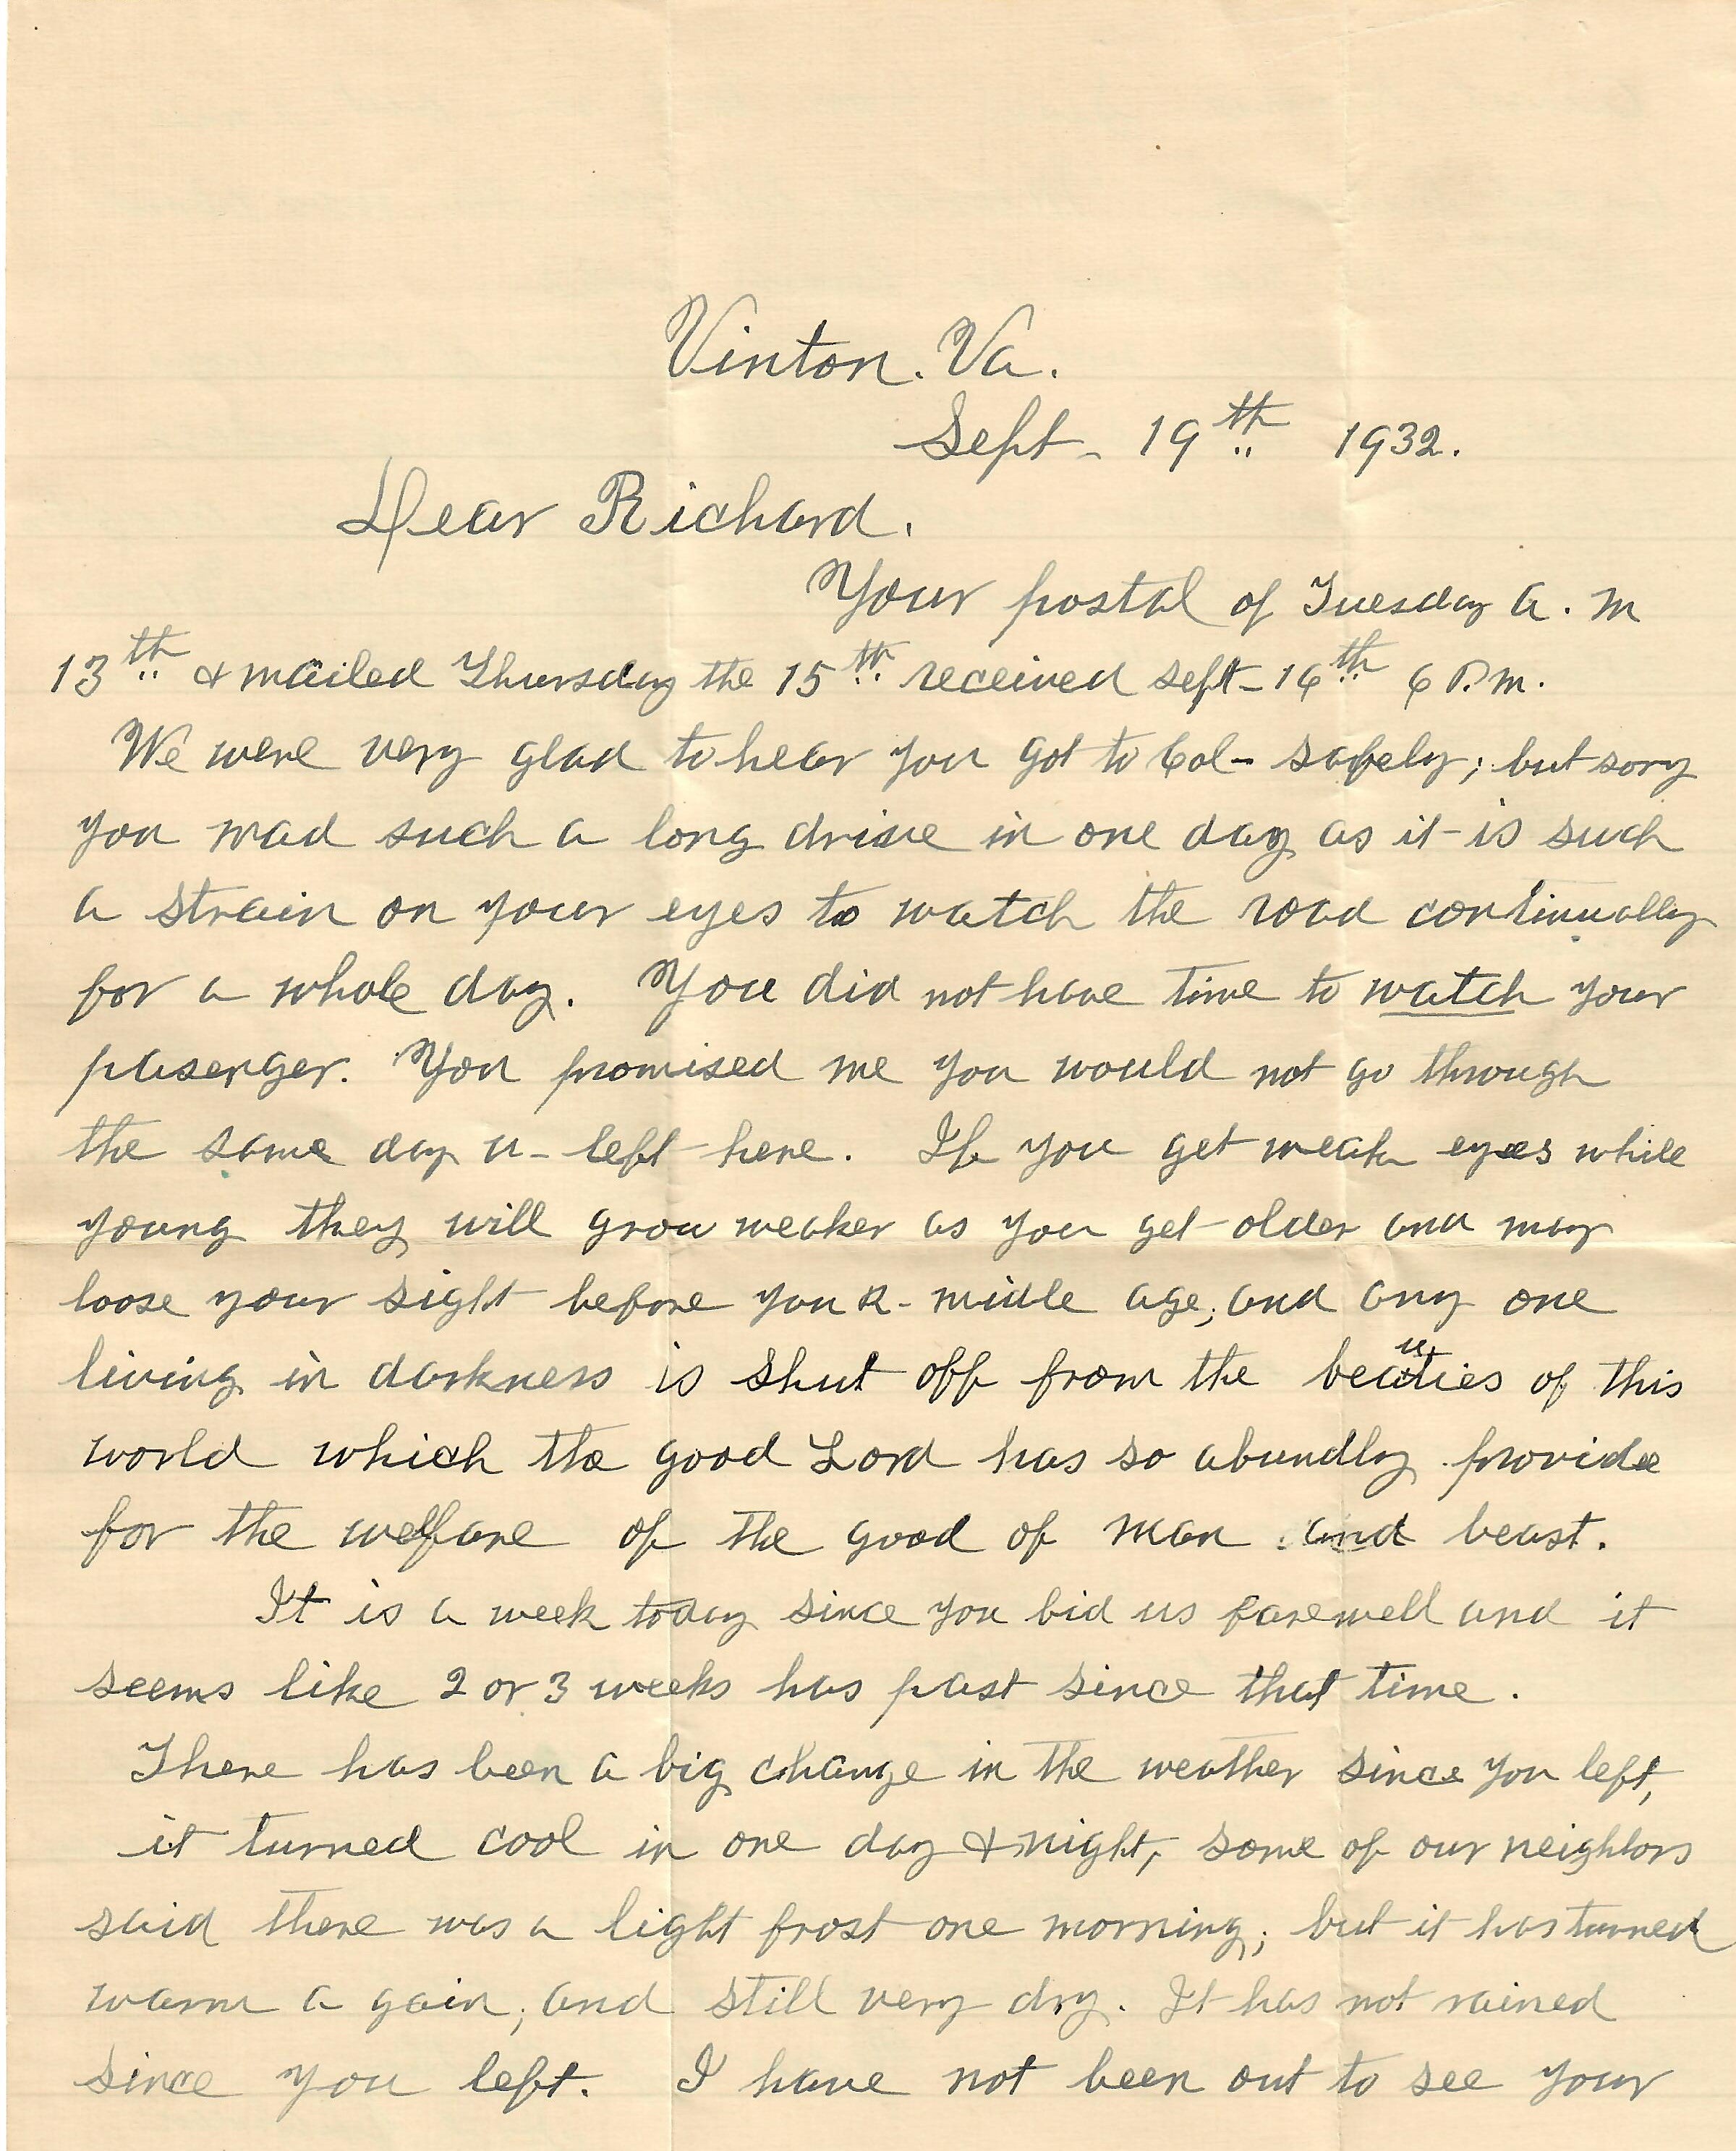 Vinton. Va.
Sept - 19th 1932.
Dear Richard.
Your postal of Tuesday a. m
13th & mailed Thursday the 15th received sept - 16th 6 P.m.
We were very glad to hear you got to Col - safely; but sory
you mad such a long drive in one day as it is such
a strain on your eyes to watch the road continually
for a whole day. You did not have time to watch your
pasenger. You promised me you would not go through
the same day u - left here. If you get weak eyes while
young they will grow weaker as you get older and may
loose your sight before you R - midle age; and any one
living in darkness is shut off from the beauties of this
world which the good Lord has so abundly provide
for the welfare of the good of man and beast.
It is a week today since you bid us farewell and it
seems like 2 or 3 weeks has past since that time.
There has been a big change in the weather since you left,
it turned cool in one day & night, some of our neighbors
said there was a light frost one morning; but it has turned
warm a gain; and still very dry. It has not rained
since you left. I have not been out to see your